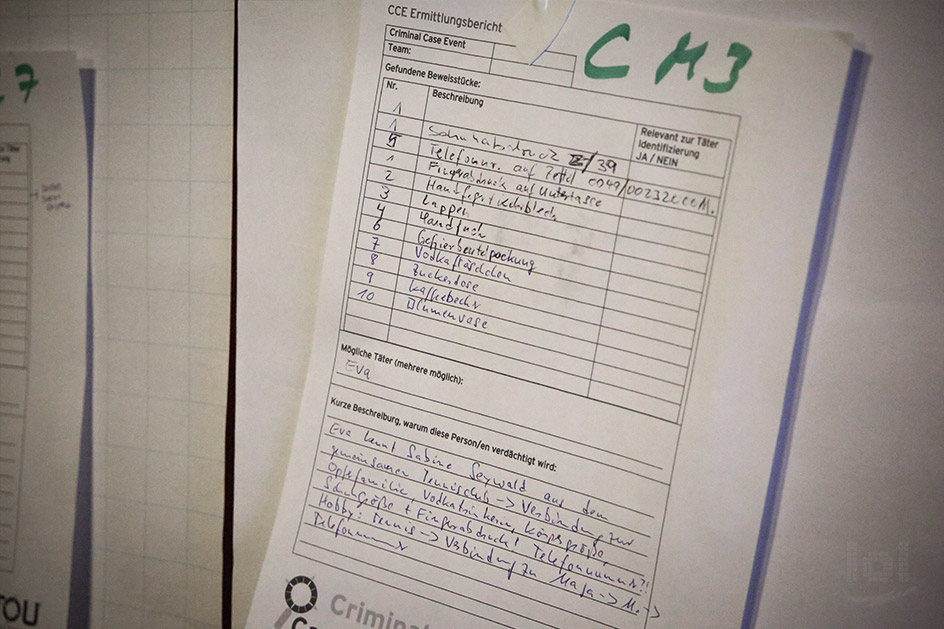 7
CCE Ermittlungsbericht
CM3
Criminal Case Event
Team:
Gefundene Beweisstücke:
Nr.
Beschreibung
Relevant zur Täter
Identifizierung
JA / NEIN
1
1 Schuhabdruck 39
5 Telefonnr. auf Zettel 0049/
1 Fingerabdruck auf Untertasse
2 Handfeger + Kehrblech
3 Lappen
4 Handtuch
6 Gefrierbeutelpackung
7 Vodkafläschchen
8 Zuckerdose
9 Kaffeebecher
10 Blumenvase
Mögliche Täter (mehrere möglich):
Eva
Kurze Beschreibung, warum diese Person/en verdächtigt wird:
Eva kennt Sabine Seywald aus dem
gemeinsamen Tennisclub -> Verbindung zur
Opferfamilie, Vodkatrinkerin, Körpergröße,
Schuhgröße + Fingerabdruck! Telefonnummer?!
Hobby: Tennis -> Verbindung zu Maja -> M. ->
Telefonnummer
Criminal
TOU